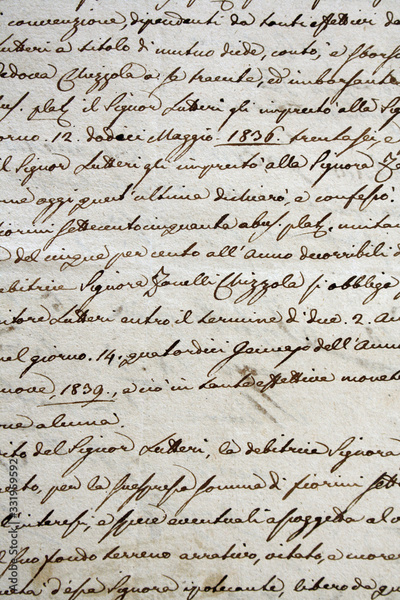 convenzione, dipendenti da tanti effettivi da
Lutteri a titolo di mutuo diede, contò, e sborsò
Vedova Chizzola a se traente, ed imborsante
abus. plat. il Signor Lutteri gli imprestò alla Sig
giorno 12. dodeci Maggio 1836. trentasei, e
il Signor Lutteri gli imprestò alla Signora Za
come oggi quest'ultima dichiarò, e confessò.
fiorini settecentocinquanta abus. plat. unitam
del cinque per cento all'anno decorribili d
debitrice Signora Zanelli Chizzola si obbliga
Lutteri entro il termine di due. 2. An
nel giorno. 14. quatordici Gennajo dell'Anno
nove, 1839., e ciò in tante effettive monete
alcuna.
del Signor Lutteri, la debitrice Signora
per la suespressa somma di fiorini sette
interessi, e spese eventuali assoggetta al
suo fondo terreno arrativo, ortato, e morer
d'essa Signora ipotecante, libero da qu
Adobe Stock | #331959592